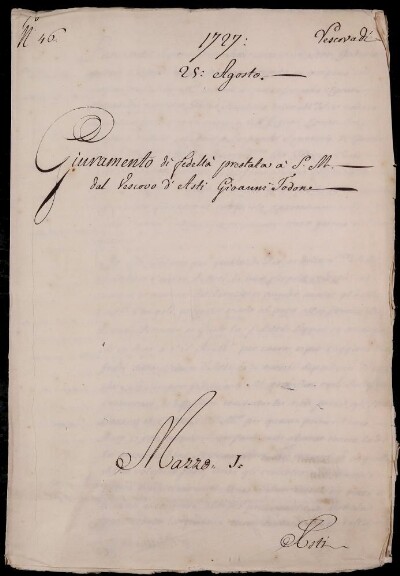 N.º 46.
1727:
Vescovadi
25: Agosto.
Giuramento di fedeltà prestata à S. M.
dal Vescovo d'Asti Giovanni Todone
Mazzo. 1.
Asti